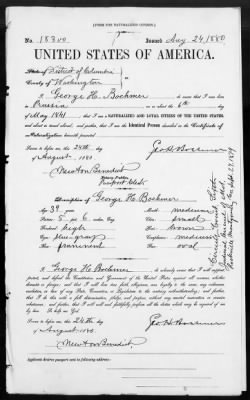 [FORM FOR NATURALIZED CITIZEN.]
No. 18300 Issued Aug 24/1880
UNITED STATES OF AMERICA.
State of District of Columbia
County of Washington
I, George H. Boehmer born in
Prussia on or about the 6th day
of May 1841, that I am a NATURALIZED AND LOYAL CITIZEN OF THE UNITED STATES,
and about to travel abroad, and further that I am the Identical Person described in the Certificate of
Naturalization herewith presented
Sworn to before me, this 24th day
of August 1880 Geo H. Boehmer
Newton Benedict
Notary Public
Passport Clerk
Description of George H. Boehmer
Age 39 years
Stature 5 feet 6 inches Eng.
Forehead high
Eyes gray
Nose prominent
Mouth medium
Chin small
Hair brown
Complexion medium
Face oval
I, George H. Boehmer do solemnly swear that I will support,
protect, and defend the Constitution and Government of the United States against all enemies, whether
domestic or foreign; and that I will bear true faith, allegiance, and loyalty to the same, any ordinance,
resolution, or law of any State, Convention, or Legislature to the contrary notwithstanding; and further,
that I do this with a full determination, pledge, and purpose, without any mental reservation or evasion
whatsoever; and, further, that I will well and faithfully perform all the duties which may be required of me
by law. So help me God.
Sworn to before me, this 24th day
of August 1880. Geo H. Boehmer
Newton Benedict,
Applicant desires passport to be sent to